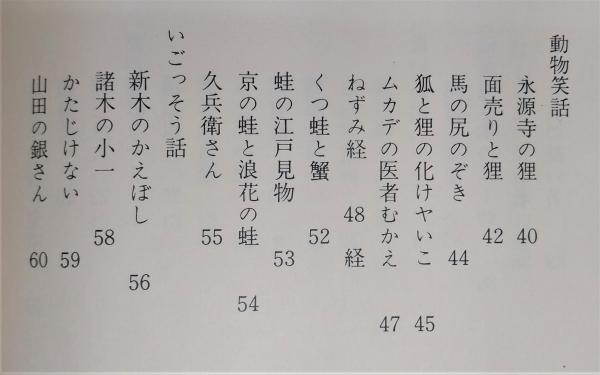 動物笑話
永源寺の狸 40
面売りと狸 42
馬の尻のぞき 44
狐と狸の化けヤいこ 45
ムカデの医者むかえ 47
ねずみ経 48 経
くつ蛙と蟹 52
蛙の江戸見物 53
京の蛙と浪花の蛙 54
久兵衛さん 55
いごっそう話
新木のかえぼし 56
諸木の小一 58
かたじけない 59
山田の銀さん 60